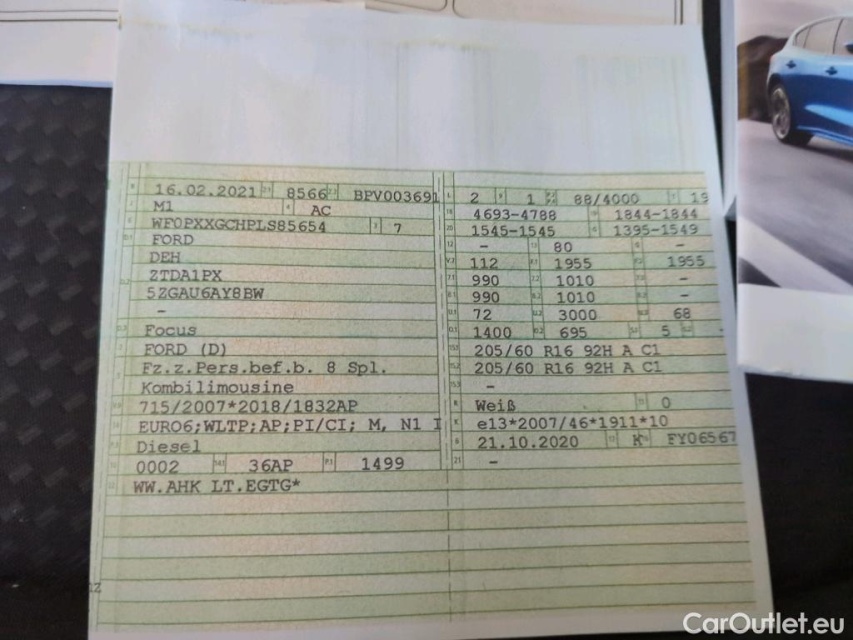 16.02.2021 8566 BPV003691 2 1 88/4000 19
M1 AC 4693-4788 1844-1844
WF0PXXGCHPLS85654 7 1545-1545 1395-1549
FORD - 80 -
DEH 112 1955 1955
ZTDA1PX 990 1010 -
5ZGAU6AY8BW 990 1010 -
- 72 3000 68
Focus 1400 695 5
FORD (D) 205/60 R16 92H A C1
Fz.z.Pers.bef.b. 8 Spl. 205/60 R16 92H A C1
Kombilimousine -
715/2007*2018/1832AP Weiß 0
EURO6;WLTP;AP;PI/CI; M, N1 I e13*2007/46*1911*10
Diesel 21.10.2020 K FY06567
0002 36AP 1499 -
WW.AHK LT.EGTG*
CarOutlet.eu